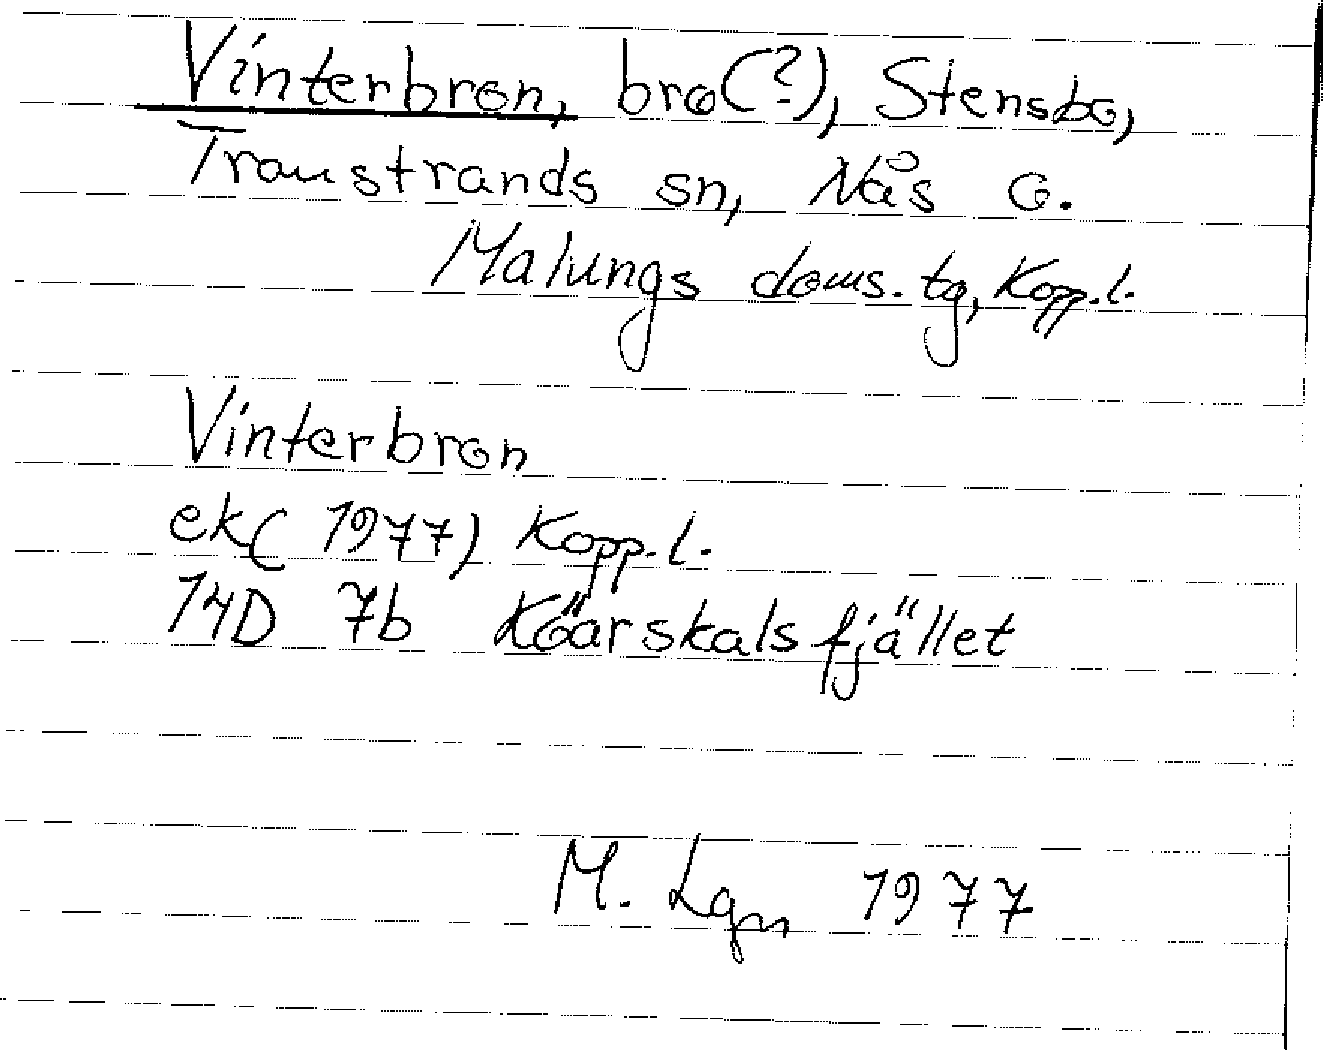 Vinterbron, bro(?), Stensbo,
Transtrands sn, Nås o.
Malungs doms. tg, Kopp.l.
Vinterbron
ek( 1977) Kopp.l.
14D 7b Köarskalsfjället
M. Lgn 1977